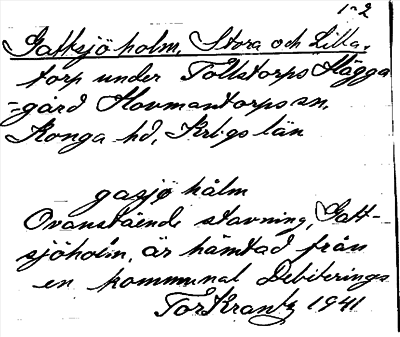 1-2
Gattsjöholm, Stora och Lilla,
torp under Tollstorps Hägga
-gård Hovmantorps sn,
Konga hd, Krbgs län
gasjø hålm
Ovanstående stavning, Gatt-
sjöholm, är hämtad från
en kommunal Debiterings
Tor Krantz 1941